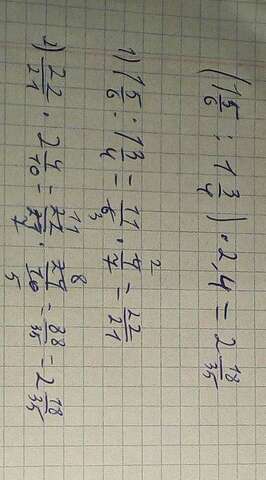 (1 5/6 : 1 3/4) · 2,4 = 2 18/35
1) 1 5/6 : 1 3/4 = 11/6 3 · 4 2/7 = 22/21
2) 22/21 · 2 4/10 = 22 11/21 7 · 24 8/10 5 = 88/35 = 2 18/35